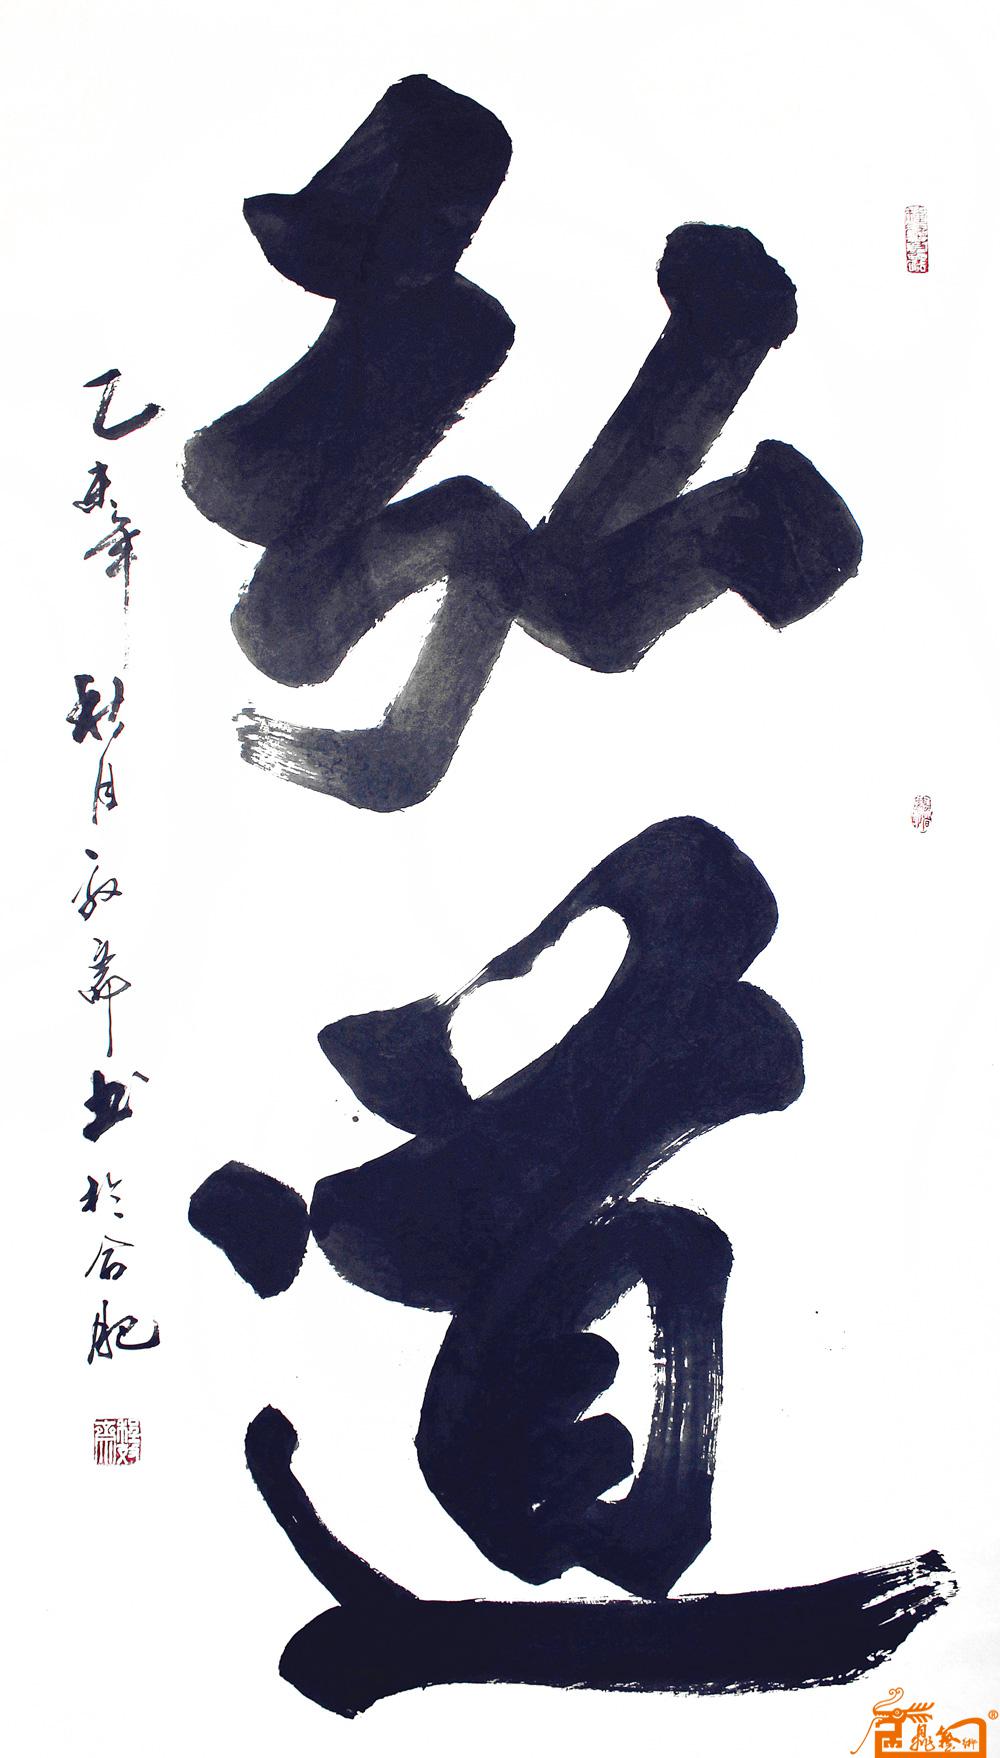 弘道
乙未年秋月敬斋书於合肥